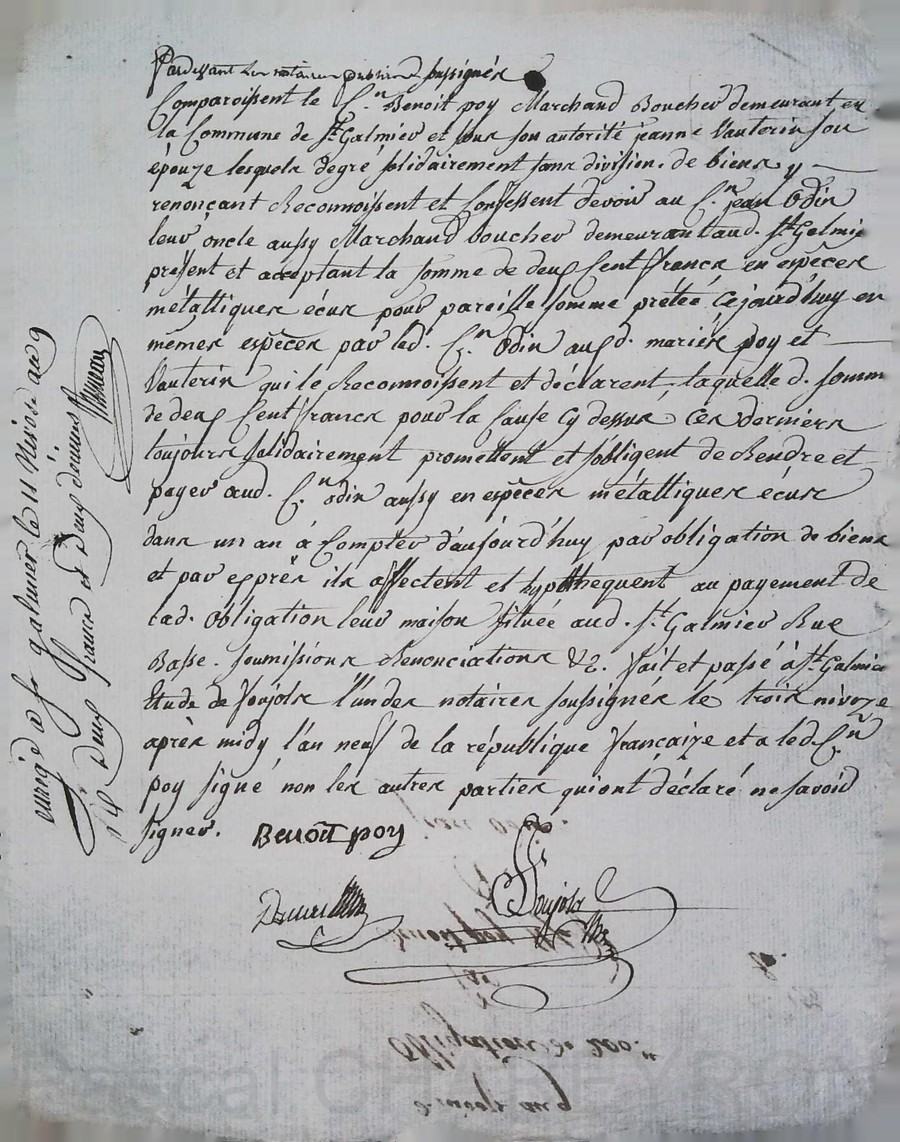 Pardevant Les notaires publics soussignés
Comparoissent le C.en Benoit poy Marchand Boucher demeurant en
la Commune de St Galmier et sous son autorité jeanne Vauterin son
épouze lesquels degré solidairement sans division, de biens y
renonçant Reconnoissent et Confessent devoir au C.en jean Odin
leur oncle aussy Marchand boucher demeurant aud. St Galmier
présent et acceptant la somme de deux Cent francs en espèces
métalliques écus pour pareille somme prêtée Cejourd'huy en
mêmes espèces par led. C.en Odin auxd. mariés poy et
Vauterin qui le Reconnoissent et déclarent, laquelle d. somme
de deux Cent francs pour la Cause Cy dessus Ces derniers
toujours solidairement promettent et s'obligent de Rendre et
payer aud. C.en odin aussy en espèces métalliques écus
dans un an à Compter d'aujourd'huy par obligation de biens
et par epprès ils affectent et hypothequent au payement de
lad. Obligation leur maison située aud. St Galmier Rue
Basse. soumissions Renonciations &c. fait et passé à St Galmier
Etude de Poujols l'un des notaires soussignés le trois nivoze
après midy l'an neuf de la république française et a led. C.en
poy signé non les autres parties qui ont déclaré ne savoir
signer. Benoît poy
Poujols
enrgé à St galmier le 11 Nivose an 9
Deux francs et Vingt décimes
Obligation de 200.
3 nivose an 9